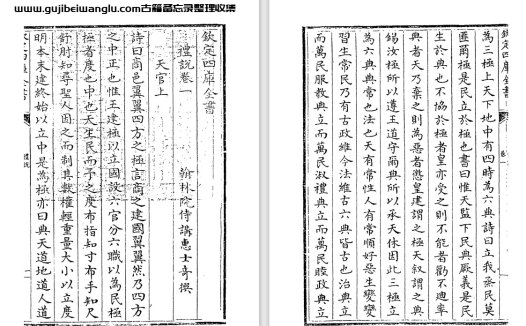 www.gujibeiwanglu.com古籍备忘录整理收集
欽定四庫全書
禮說卷一
翰林院侍講惠士奇撰
天官上
詩曰商邑翼翼四方之極言商之建國翼翼然乃四方
之中正也惟王建極以立國設六官分六職以為民極
極者度也中也天生民而予之度布指知寸布手知尺
舒肘知尋聖人因之而制其數權輕重量大小以立度
明本末達終始以立中是為極亦曰典天道地道人道
欽定四庫全書
為三極上天下地中有四時為六典詩曰立我烝民莫
匪爾極是民立於極也書曰惟天監下民典厥義是民
生於典也不協於極者皇亦受之則不能者勸不迪率
典者天乃棄之則為惡者懲皇建謂之極天敘謂之典
錫汝極所以遵王道守爾典所以承天休因此三極立
為六典典常也法也天有常性人有常順好惡生變變
習生常民乃有古政維今法維古六典皆古也治典立
而萬民服教典立而萬民淑禮典立而萬民睦政典立